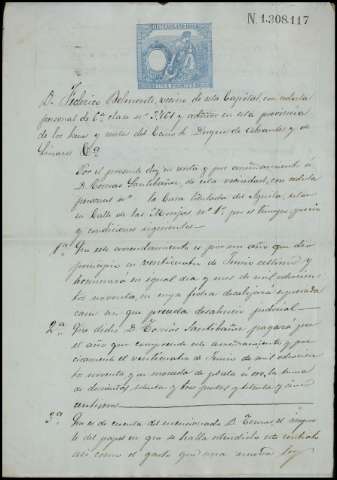 N 1.308.117
D. Federico Belmonte, vecino de esta Capital, con cedula
personal de 6ª clase nº 3361 y en esta provincia
de los y rentas del Duque de y de
Linares Cª
Por el presente doy en renta y por arrendamiento á
D. Tomas Santibañez, de esta vecindad, con cedula
personal nº la Casa titulada del Aguila, sita
en Calle de las Monjas nº 1, por el tiempo, precio
y condiciones siguientes.
1ª Que este arrendamiento es por un año que dió
principio en veinticuatro de Junio ultimo y
terminará en igual dia y mes de mil ochocien
tos noventa, en cuya fecha desalojará espresada
casa sin que preceda desahucio judicial.
2ª Que dicho D. Tomás Santibañez pagará por
el año que comprende este arrendamiento y pre
cisamente el veinticuatro de Junio de mil ochocien
tos noventa y en moneda de plata ú oro, la suma
de doscientas, setenta y tres pesetas y setenta y cinco
centimos
3ª Que es de cuenta del mencionado D. Tomas, el
te del papel en que se halla estendido este contrato
asi como el gasto que una